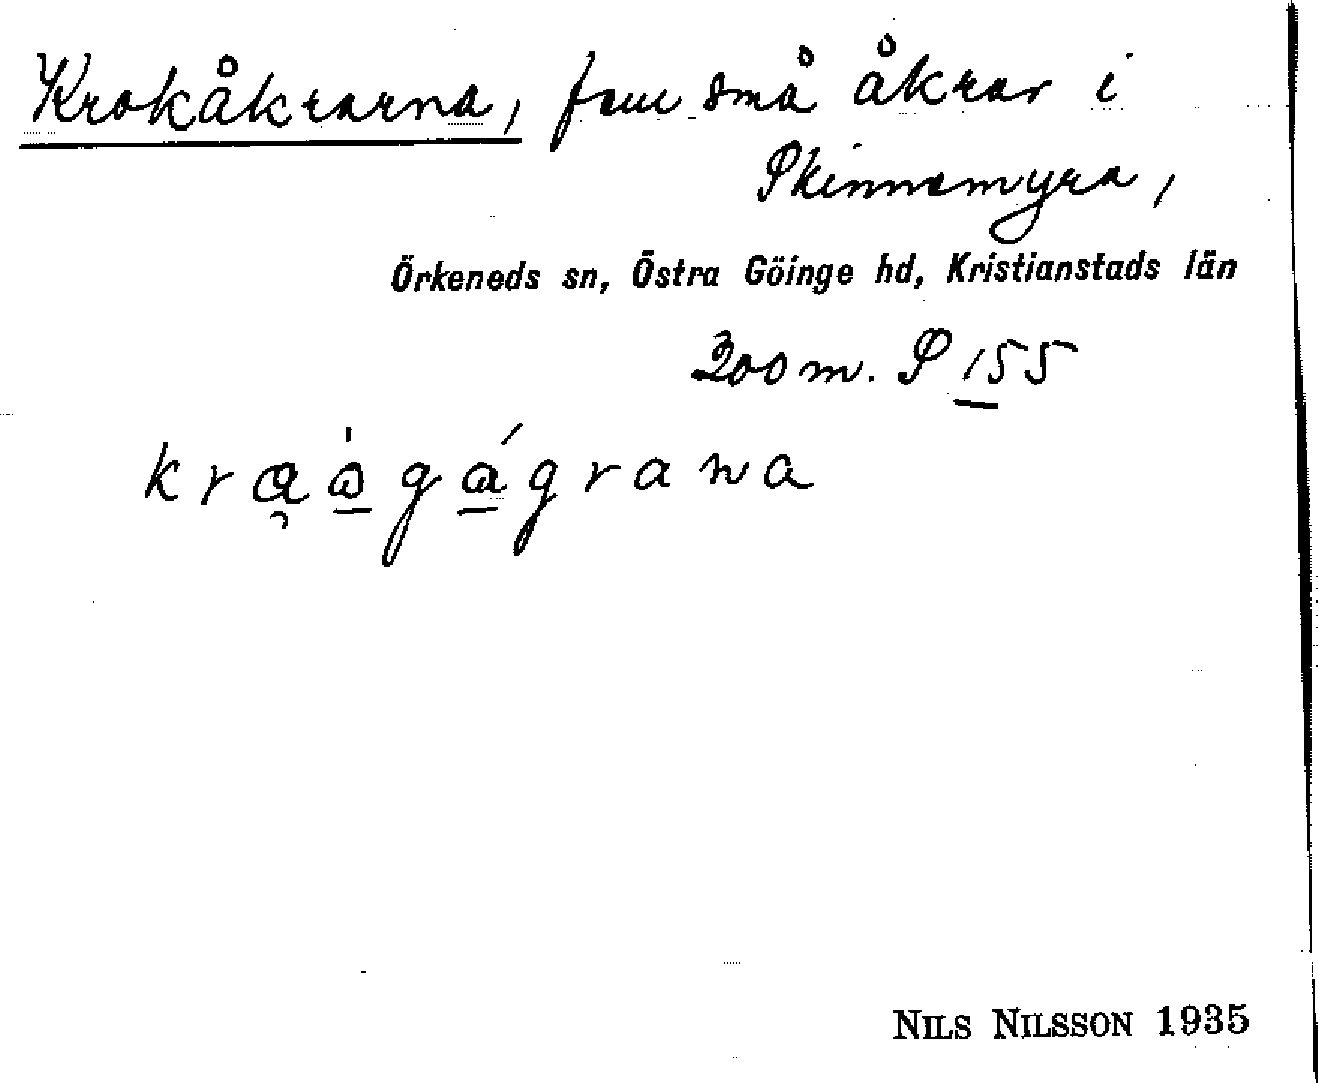 Krokåkrarna, fem små åkrar i
Skinnemyra,
Örkeneds sn, Östra Göinge hd, Kristianstads län
200 m. S 155
NILS NILSSON 1935